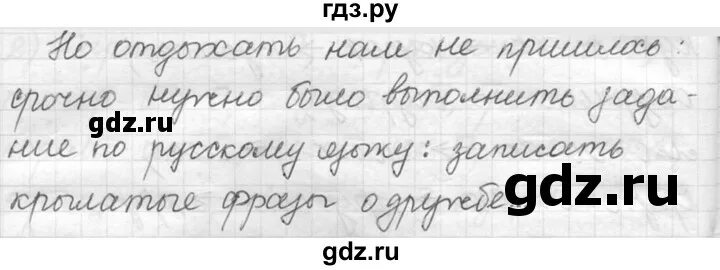 гдз.ру
Но отдыхать нам не пришлось:
срочно нужно было выполнить зада-
gdz.ru
ние по русскому языку: записать
крылатые фразы о дружбе
gdz.ru
gdz.ru